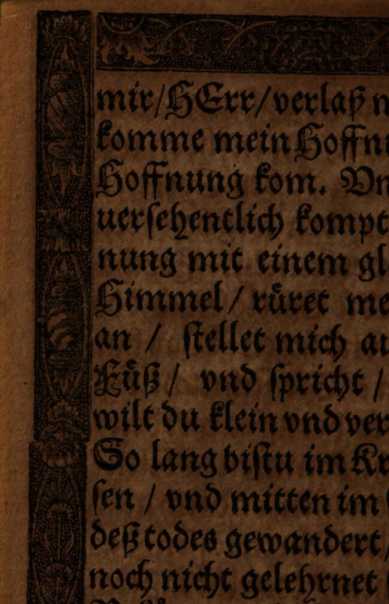 mir/HErr/verlaß
komme mein Hoffn
Hoffnung kom. Vn
uersehentlich kompt
nung mit einem gl
Himmel / rüret me
an / stellet mich au
Füß / vnd spricht /
wilt du klein vnd ver
So lang bistu im Kr
sen / vnd mitten im
deß todes gewandert,
noch nicht gelehrnet